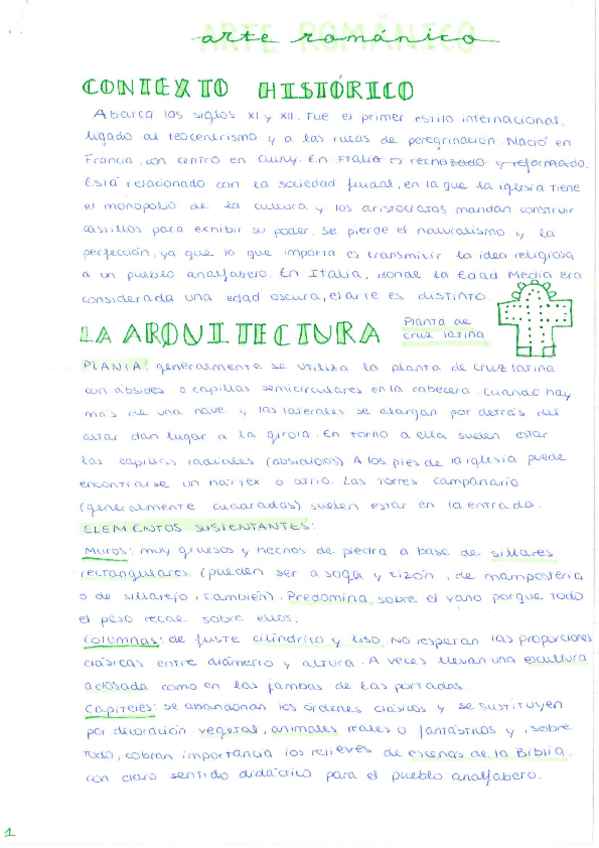 arte románico
CONTEXTO HISTÓRICO
Abarca los siglos XI y XII. Fue el primer estilo internacional,
ligado al teocentrismo y a las rutas de peregrinación. Nació en
Francia, con centro en Cluny. En Italia es rechazado y reformado.
Está relacionado con la sociedad feudal, en la que la iglesia tiene
el monopolio de la cultura y los aristócratas mandan construir
castillos para exhibir su poder. Se pierde el naturalismo y la
perfección, ya que lo que importa es transmitir la idea religiosa
a un pueblo analfabero. En Italia, donde la Edad Media era
considerada una edad oscura, el arte es distinto.
LA ARQUITECTURA
Planta de
cruz latina
PLANTA: generalmente se utiliza la planta de cruz latina
con ábsides o capillas semicirculares en la cabecera. Cuando hay
más de una nave y las laterales se alargan por detrás del
altar dan lugar a la girola. En torno a ella suelen estar
las capillas radiales (absidiolos) A los pies de la iglesia puede
encontrarse un nártex o atrio. Las torres campanario
(generalmente cuadradas) suelen estar en la entrada.
ELEMENTOS SUSTENTANTES:
Muros: muy gruesos y hechos de piedra a base de sillares
rectangulares (pueden ser a soga y tizón, de mampostería
o de sillarejo, también). Predomina sobre el vano porque todo
el peso recae sobre ellos.
Columnas: de fuste cilíndrico y liso. No respetan las proporciones
clásicas entre diámetro y altura. A veces llevan una escultura
adosada como en las jambas de las portadas.
Capiteles: se abandonan los órdenes clásicos y se sustituyen
por decoración vegetal, animales reales o fantástnos y, sobre
todo, cobran importancia los relieves de escenas de la Biblia,
con claro sentido didáctico para el pueblo analfabero.
1